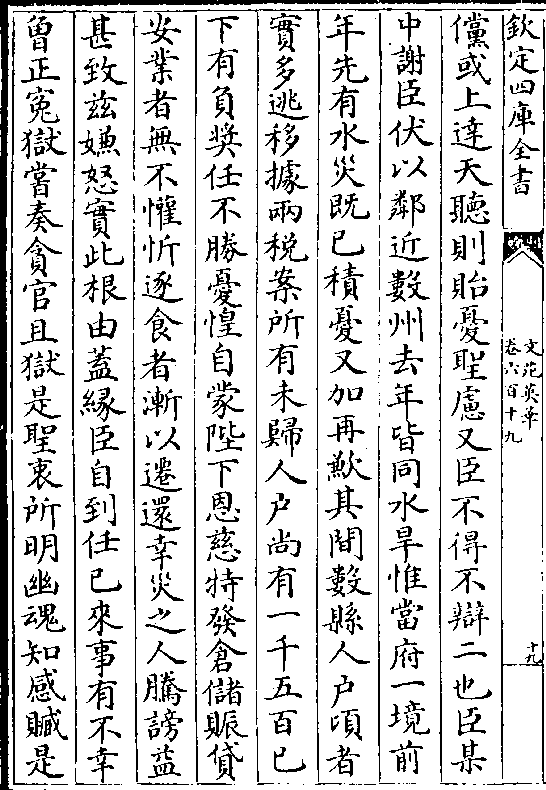 欽定四庫全書
文苑英華
卷六百十九
十九
儻或上達天聽則貽憂聖慮又臣不得不辯二也臣某
中謝臣伏以鄰近數州去年皆同水旱惟當府一境前
年先有水災既已積憂又加再歉其間數縣人户頃者
實多逃移據兩税案所有未歸人户尚有一千五百已
下有負奬任不勝憂惶自蒙陛下恩慈特發倉儲賑貸
安業者無不懽忻逐食者漸以遷還幸災之人騰謗益
甚致兹嫌怒實此根由蓋緣臣自到任已來事有不幸
曾正寃獄嘗奏貪官且獄是聖衷所明幽魂知感贓是